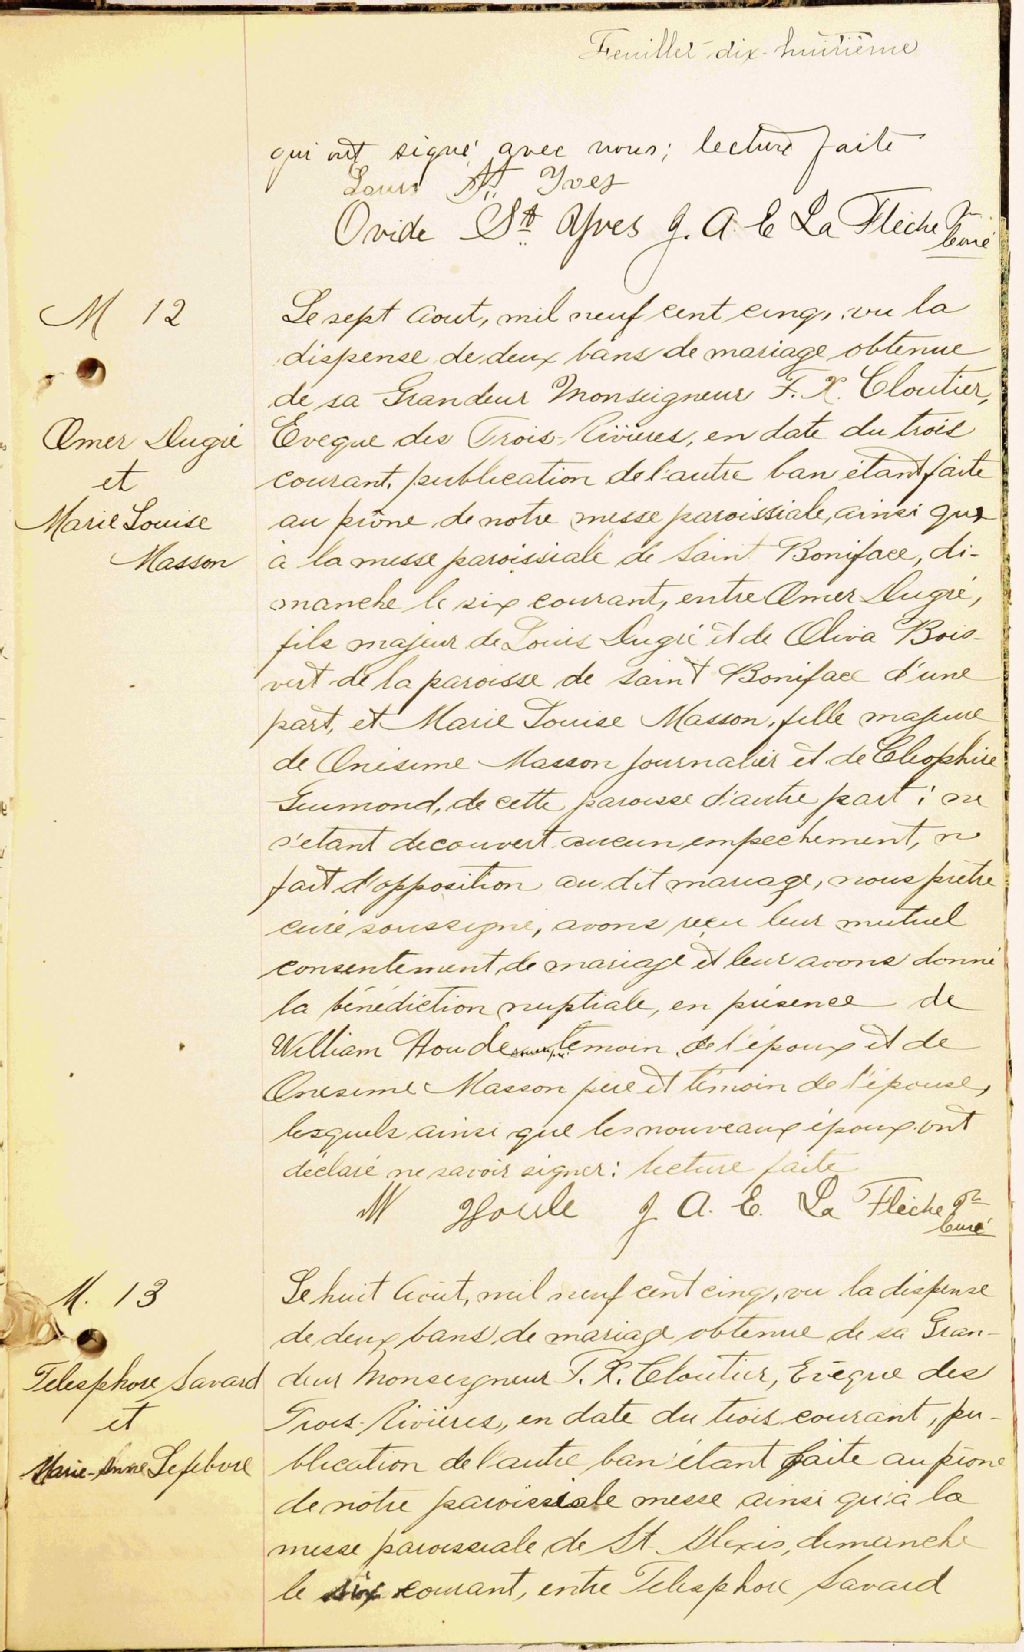 Feuillet dix-huitième
qui ont signé avec nous; lecture faite
Louis St Yves
Ovide St Yves J. A. E La Flèche ptr
Curé
M 12
Omer Dugré
et
Marie Louise
Masson
Le sept Aout, mil neuf cent cinq, vu la
dispense de deux bans de mariage obtenue
de sa Grandeur Monseigneur F. X. Cloutier,
Evêque des Trois-Rivières, en date du trois
courant, publication de l'autre ban étant faite
au prône de notre messe paroissiale, ainsi que
à la messe paroissiale de Saint Boniface, di-
manche le six courant, entre Omer Dugré,
fils majeur de Louis Dugré et de Oliva Bois-
vert de la paroisse de saint Boniface d'une
part, et Marie Louise Masson, fille majeure
de Onésime Masson journalier et de Cléophire
Guimond, de cette paroisse d'autre part; ne
s'étant decouvert aucun empêchement, ni
fait d'opposition au dit mariage, nous prêtre
curé soussigné, avons reçu leur mutuel
consentement de mariage et leur avons donné
la bénédiction nuptiale, en présence de
William Houde témoin de l'époux et de
Onesime Masson père et témoin de l'épouse,
lesquels ainsi que les nouveaux époux ont
déclaré ne savoir signer: lecture faite
W Houle J A. E. La Flèche ptr
Curé
M. 13
Telesphore Savard
et
Marie-Anne Lefebvre
Le huit Août, mil neuf cent cinq, vu la dispense
de deux bans de mariage obtenue de sa Gran-
deur Monseigneur F. X. Cloutier, Evêque des
Trois-Rivières, en date du trois courant, pu-
blication de l'autre ban étant faite au prône
de nôtre paroissiale messe ainsi qu'à la
messe paroissiale de St. Alexis, dimanche
le six courant, entre Telesphore Savard